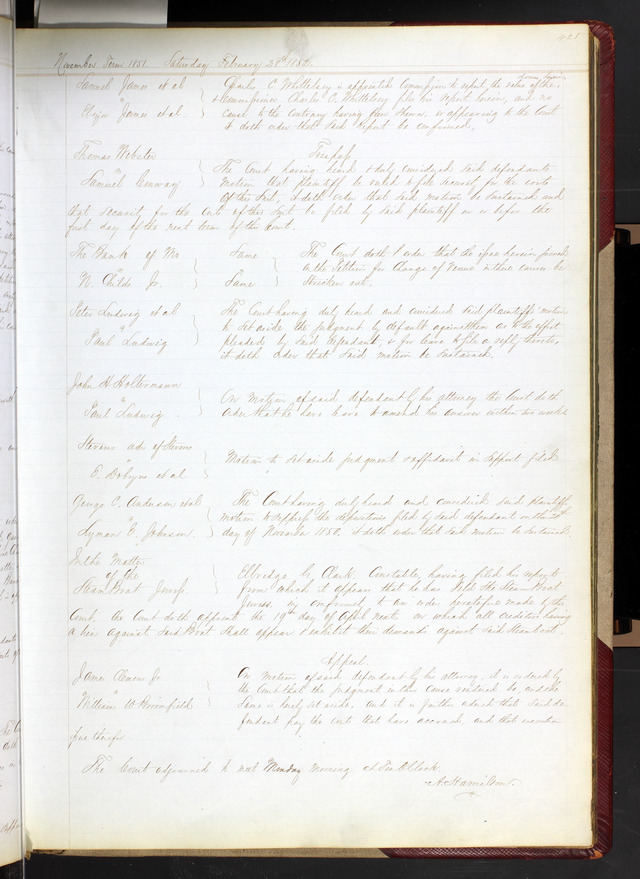 423
November Term 1851. Saturday February 28th 1852.
Samuel James et al
vs
James et al
Charles C. Whittelsey is appointed Commissioner to report the value of the
Commissioner Charles C. Whittelsey files his report herein, and no
cause to the contrary having been shown, or appearing to the Court
it doth order that said Report be confirmed.
Thomas Webster
vs
Samuel Conway
Trespass
The Court having heard & duly considered said defendants
motion that plaintiff be ruled to file security for the costs
of this suit, it doth order that said motion be sustained and
that security for the costs of this suit be filed by said plaintiff on or before the
first day of the next term of this Court.
The Bank of Mo
vs
N. Childs Jr.
Same
Same
The Court doth order that the issue herein joined
on the Petition for change of venue in these causes be
stricken out.
Peter Ludwig et al
vs
Paul Ludwig
The Court having duly heard and considered said plaintiffs motion
to set aside the judgment by default against them as to the offset
pleaded by said defendant, & for leave to file a reply thereto,
it doth order that said motion be sustained.
John H. Holtermann
vs
Paul Ludwig
On motion of said defendant by his attorney the Court doth
order that he have leave to amend his answer within two weeks
Stevens adm of Stevens
vs
E. Dobyns et al
Motion to set aside judgment & affidavit in support filed.
George C. Anderson et al
vs
Lyman C. Johnson.
The Court having duly heard and considered said plaintiffs
motion to suppress the depositions filed by said defendant on the
day of November 1850, it doth order that said motion be sustained.
In the Matter
of the
Steam Boat Jewess.
Elbredge G. Clark, Constable, having filed his report
from which it appears that he has sold the Steam Boat
Jewess, in conformity to an order heretofore made by this
Court, the Court doth appoint the 19th day of April next on which all creditors having
a lien against said Boat shall appear & exhibit their demands against said Steam boat.
Appeal.
James Jr
vs
William W. Greenfield
On motion of said defendant by his attorney, it is ordered by
the Court that the judgment in this cause rendered be, and the
same is hereby set aside, and it is further ordered that said de-
fendant pay the costs that have accrued, and that execution
issue therefor
The Court adjourned to meet Monday morning at Ten O'Clock
A. Hamilton.